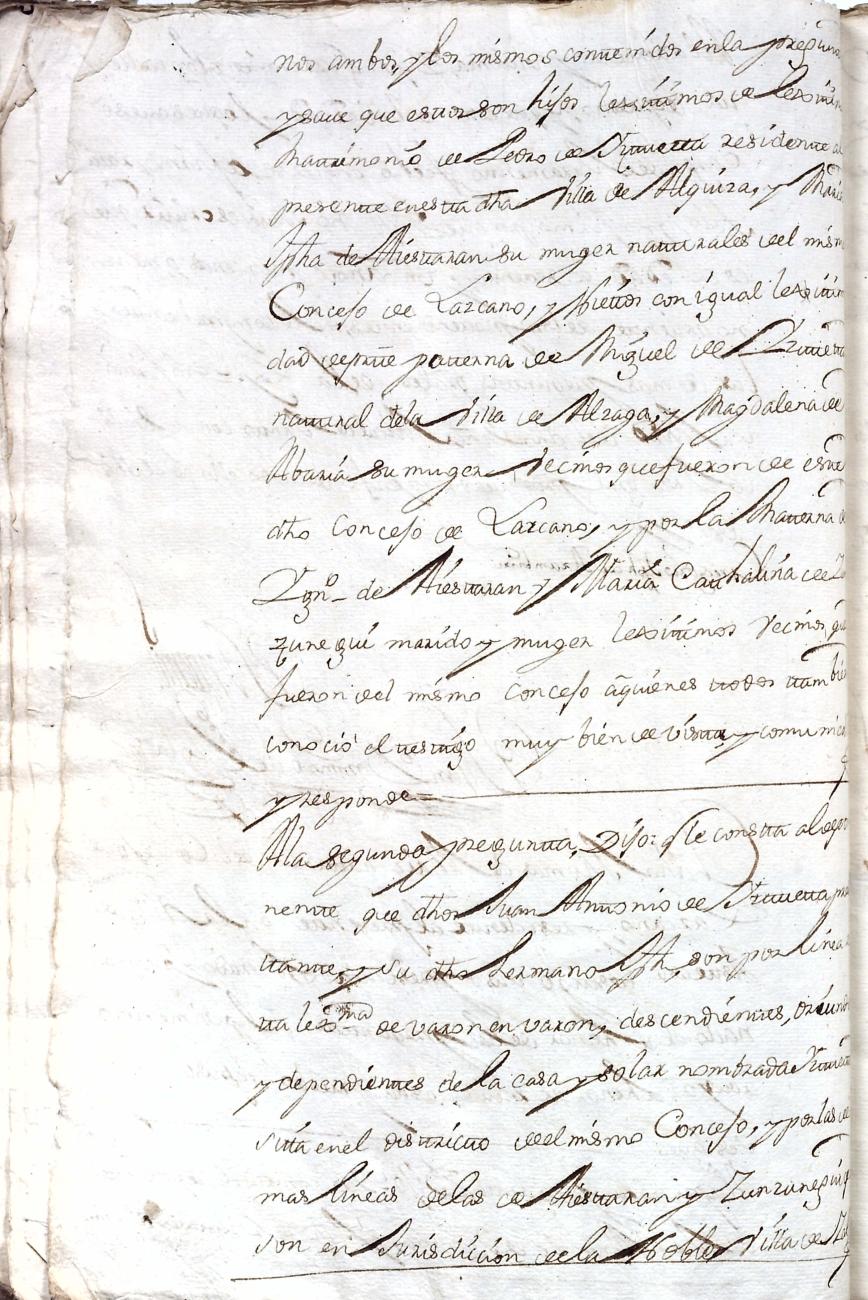 nos ambos, y los mismos contenidos en la pregun
y save que estos son hijos lexitimos de lexitim
Matrimonio de Pedro de Ytuetta residente al
presente en esta dha Villa de Alquiza, y Maria
Jpha de Aiestaran su muger naturales del mism
Concejo de Lazcano, y Nietos con igual lexitim
dad de partte paterna de Miguel de Yttuetta
natural de la Villa de Alzaga, y Magdalena de
Abaria su muger Vecinos que fueron de este
dho Concejo de Lazcano, y por la Materna de
Ygn.o de Aiestaran y Maria Cathalina de Zu
zunegui marido y muger lexitimos Vecinos qu
fueron del mismo Concejo aquienes todos tambien
conoció el testigo muy bien de vista, y comunica
y responde
Ala segunda pregunta, Dijo: q le constta al depo
nente que dhos Juan Antonio de Yttuetta, pre
ttante, y su dho hermano Jph, son por linea
tta lex.ma de varon en varon, descendientes, oriun
y dependientes de la casa y solar nombrada Yttuetta
sita en el districto del mismo Concejo, y por las de
mas lineas de las de Aiestaran y Zunzunegui q
son en Jurisdicion de la Noble Villa de